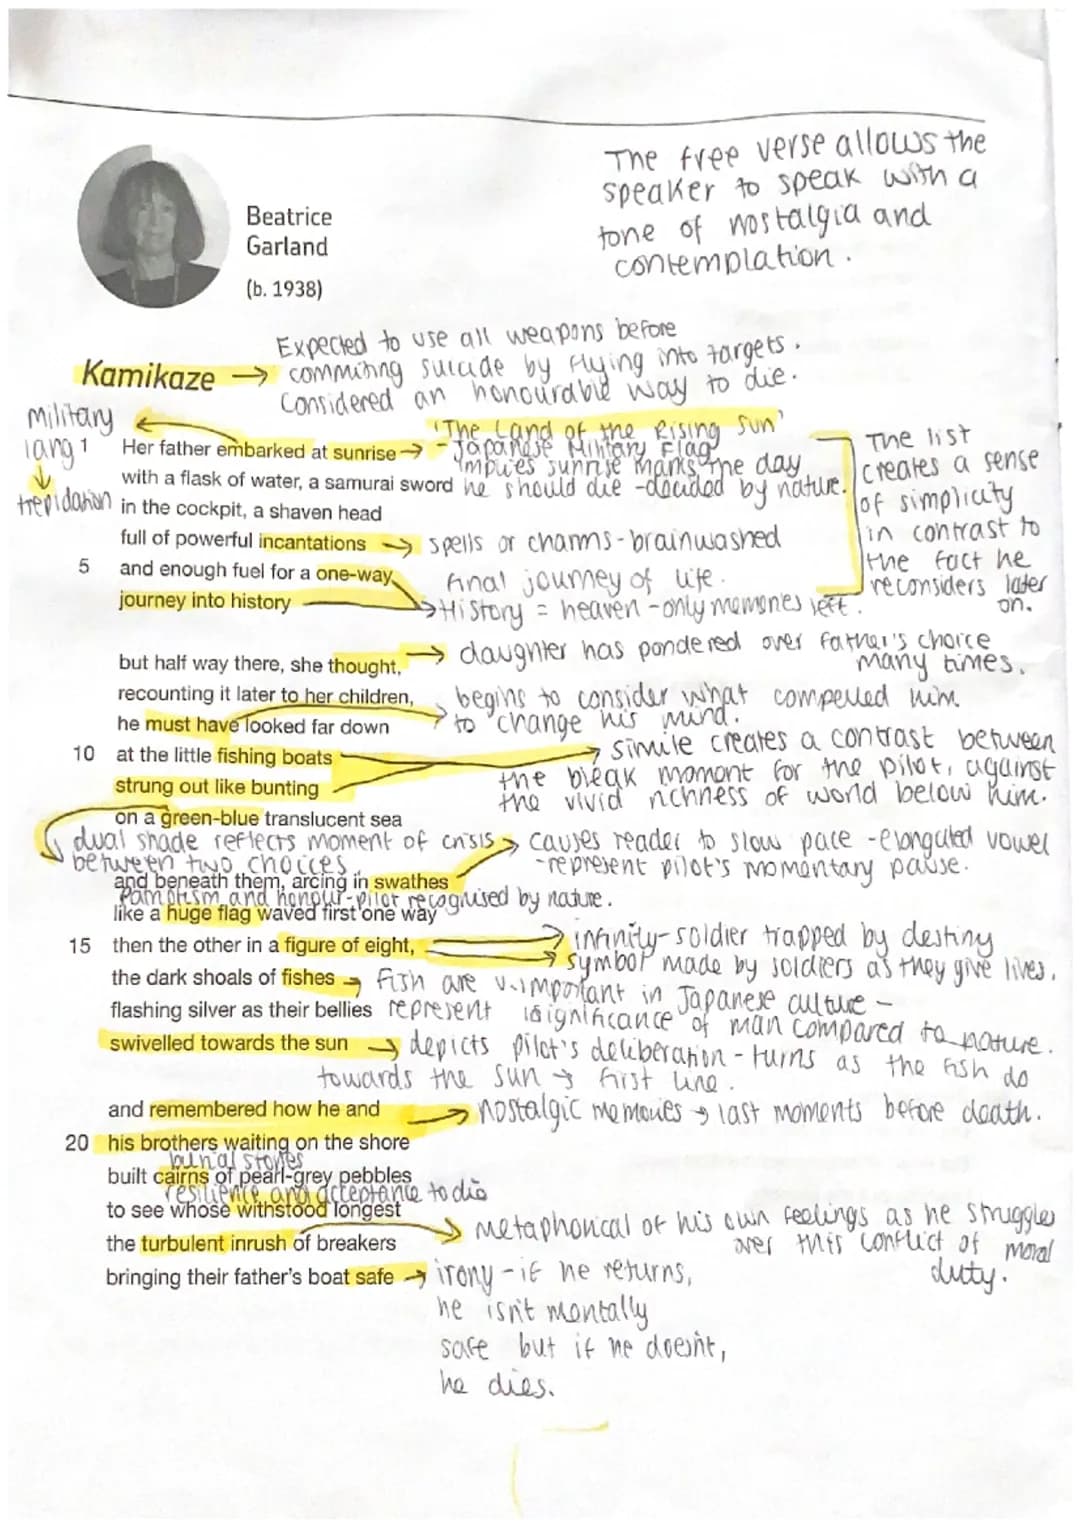 The free verse allows the
speaker to speak with a
tone of nostalgia and
contemplation.
Beatrice
Garland
(b. 1938)
Expected to use all weapons before
commiting suicide by flying into targets.
Considered an honourable way to die.
Kamikaze →
Military
lang
↓
trepidation
'The Land of the Rising Sun'
- Japanese Military Flag
implies sunrise marks the day
he should die - decided by nature.
The list
creates a sense
of simplicity
in contrast to
the fact he
reconsiders later
on.
1 Her father embarked at sunrise →
with a flask of water, a samurai sword
in the cockpit, a shaven head
full of powerful incantations → spells or charms - brainwashed
5 and enough fuel for a one-way final journey of life.
journey into history → History = heaven - only memories left.
but half way there, she thought, → daughter has pondered over father's choice
many times.
recounting it later to her children, begins to consider what compelled him
he must have looked far down to change his mind.
10 at the little fishing boats → simile creates a contrast between
the bleak moment for the pilot, against
strung out like bunting the vivid richness of world below him.
on a green-blue translucent sea
dual shade reflects moment of crisis
between two choices
→ causes reader to slow pace - elongated vowel
- represent pilot's momentary pause.
and beneath them, arcing in swathes
Patriotism and honour - pilot recognised by nature.
like a huge flag waved first one way
15 then the other in a figure of eight, → infinity - soldier trapped by destiny
→ symbol made by soldiers as they give lives.
the dark shoals of fishes → Fish are v. important in Japanese culture -
flashing silver as their bellies represent isignificance of man compared to nature.
swivelled towards the sun → depicts pilot's deliberation - turns as the fish do
towards the sun → first line.
and remembered how he and → nostalgic memories → last moments before death.
20 his brothers waiting on the shore
burial stones
built cairns of pearl-grey pebbles
resilience and acceptance to die
to see whose withstood longest
→ metaphorical of his own feelings as he struggles
over this conflict of moral
duty.
the turbulent inrush of breakers
bringing their father's boat safe → irony - if he returns,
he isn't mentally
safe but if he doesn't,
he dies.